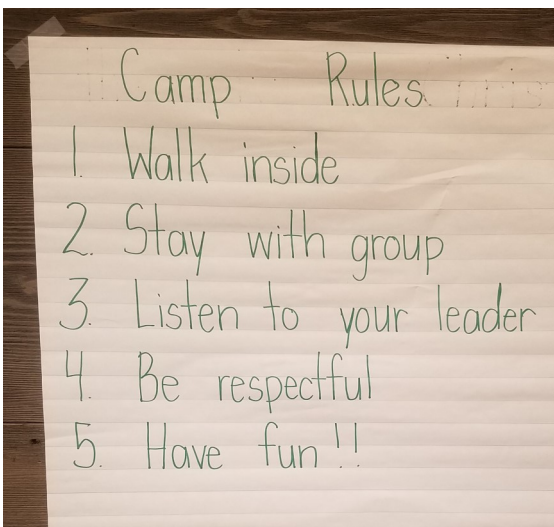 Camp Rules
1. Walk inside
2. Stay with group
3. Listen to your leader
4. Be respectful
5. Have fun!!